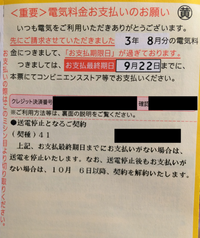 <重要>電気料金お支払いのお願い
黄
いつも電気をご利用いただきありがとうございます。
先にご請求させていただきました 3年 8月分の電気料
金につきまして、「お支払期限日」が過ぎております。
つきましては、お支払最終期日 9月22日までに、
本票にてコンビニエンスストア等でお支払いください。
クレジット決済番号
確認
※ご利用方法等は、裏面の説明をご覧ください。
●送電停止となるご契約
(契種) 41
上記、お支払最終期日までにお支払いがない場合は、
送電を停止いたします。なお、送電停止後もお支払いが
ない場合は、10月 6日以降、契約を解約いたします。